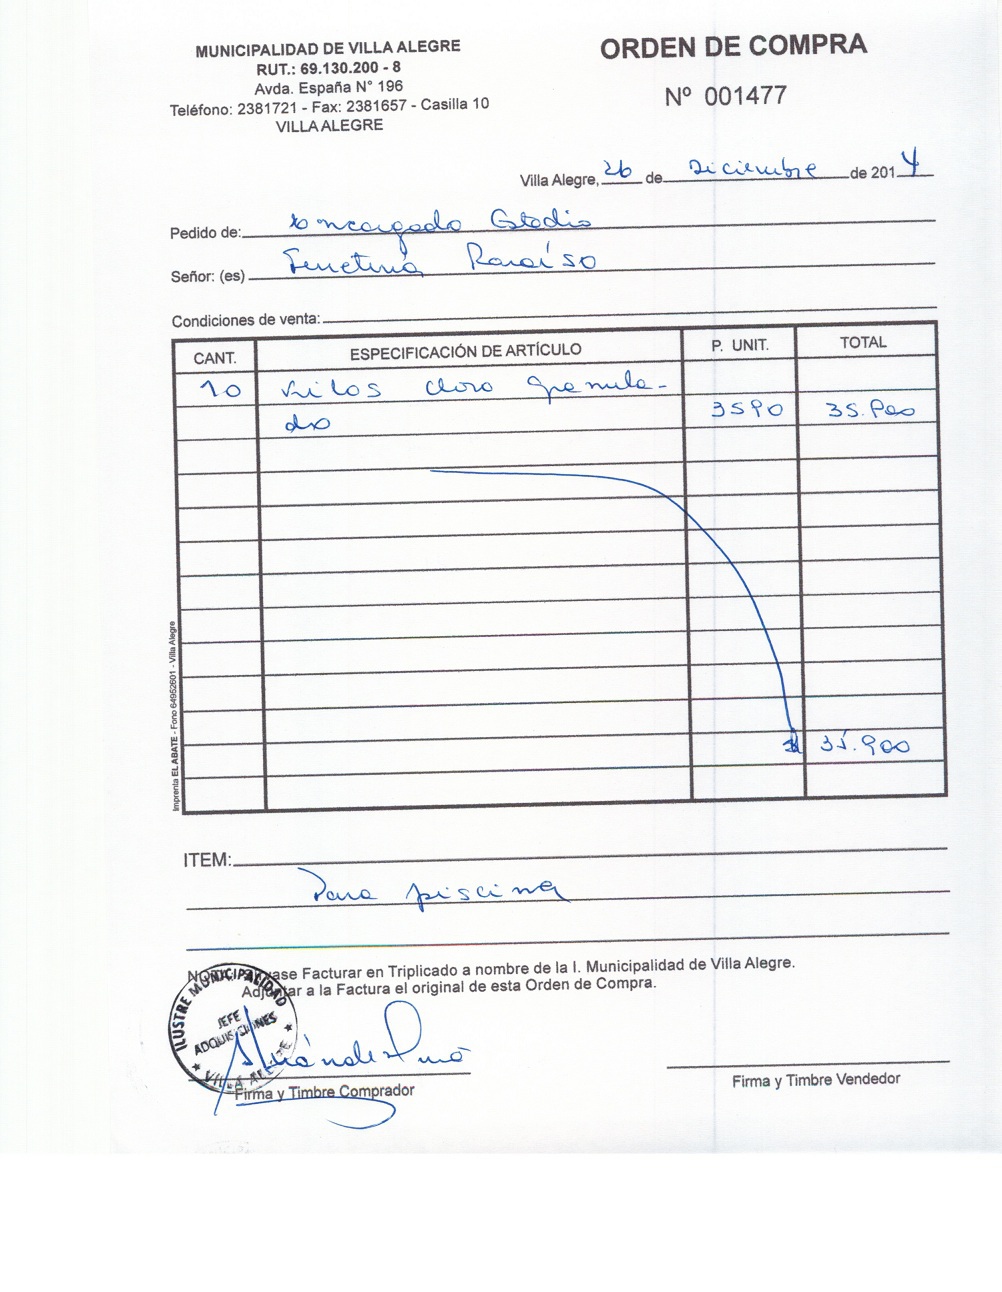 MUNICIPALIDAD DE VILLA ALEGRE
RUT.: 69.130.200 - 8
Avda. España N° 196
Teléfono: 2381721 - Fax: 2381657 - Casilla 10
VILLA ALEGRE
ORDEN DE COMPRA
Nº 001477
Villa Alegre, 26 de Diciembre de 2014
Pedido de: Encargado Estadio
Señor: (es) Ferretería Paraíso
Condiciones de venta:
CANT. ESPECIFICACIÓN DE ARTÍCULO P. UNIT. TOTAL
10 kilos cloro granula-
do 3590 35.900
$ 35.900
Imprenta EL ABATE - Fono 64952601 - Villa Alegre
ITEM:
Para piscina
NOTA: Sírvase Facturar en Triplicado a nombre de la I. Municipalidad de Villa Alegre.
Adjuntar a la Factura el original de esta Orden de Compra.
ILUSTRE MUNICIPALIDAD
JEFE
ADQUISICIONES
VILLA ALEGRE
Firma y Timbre Comprador
Firma y Timbre Vendedor